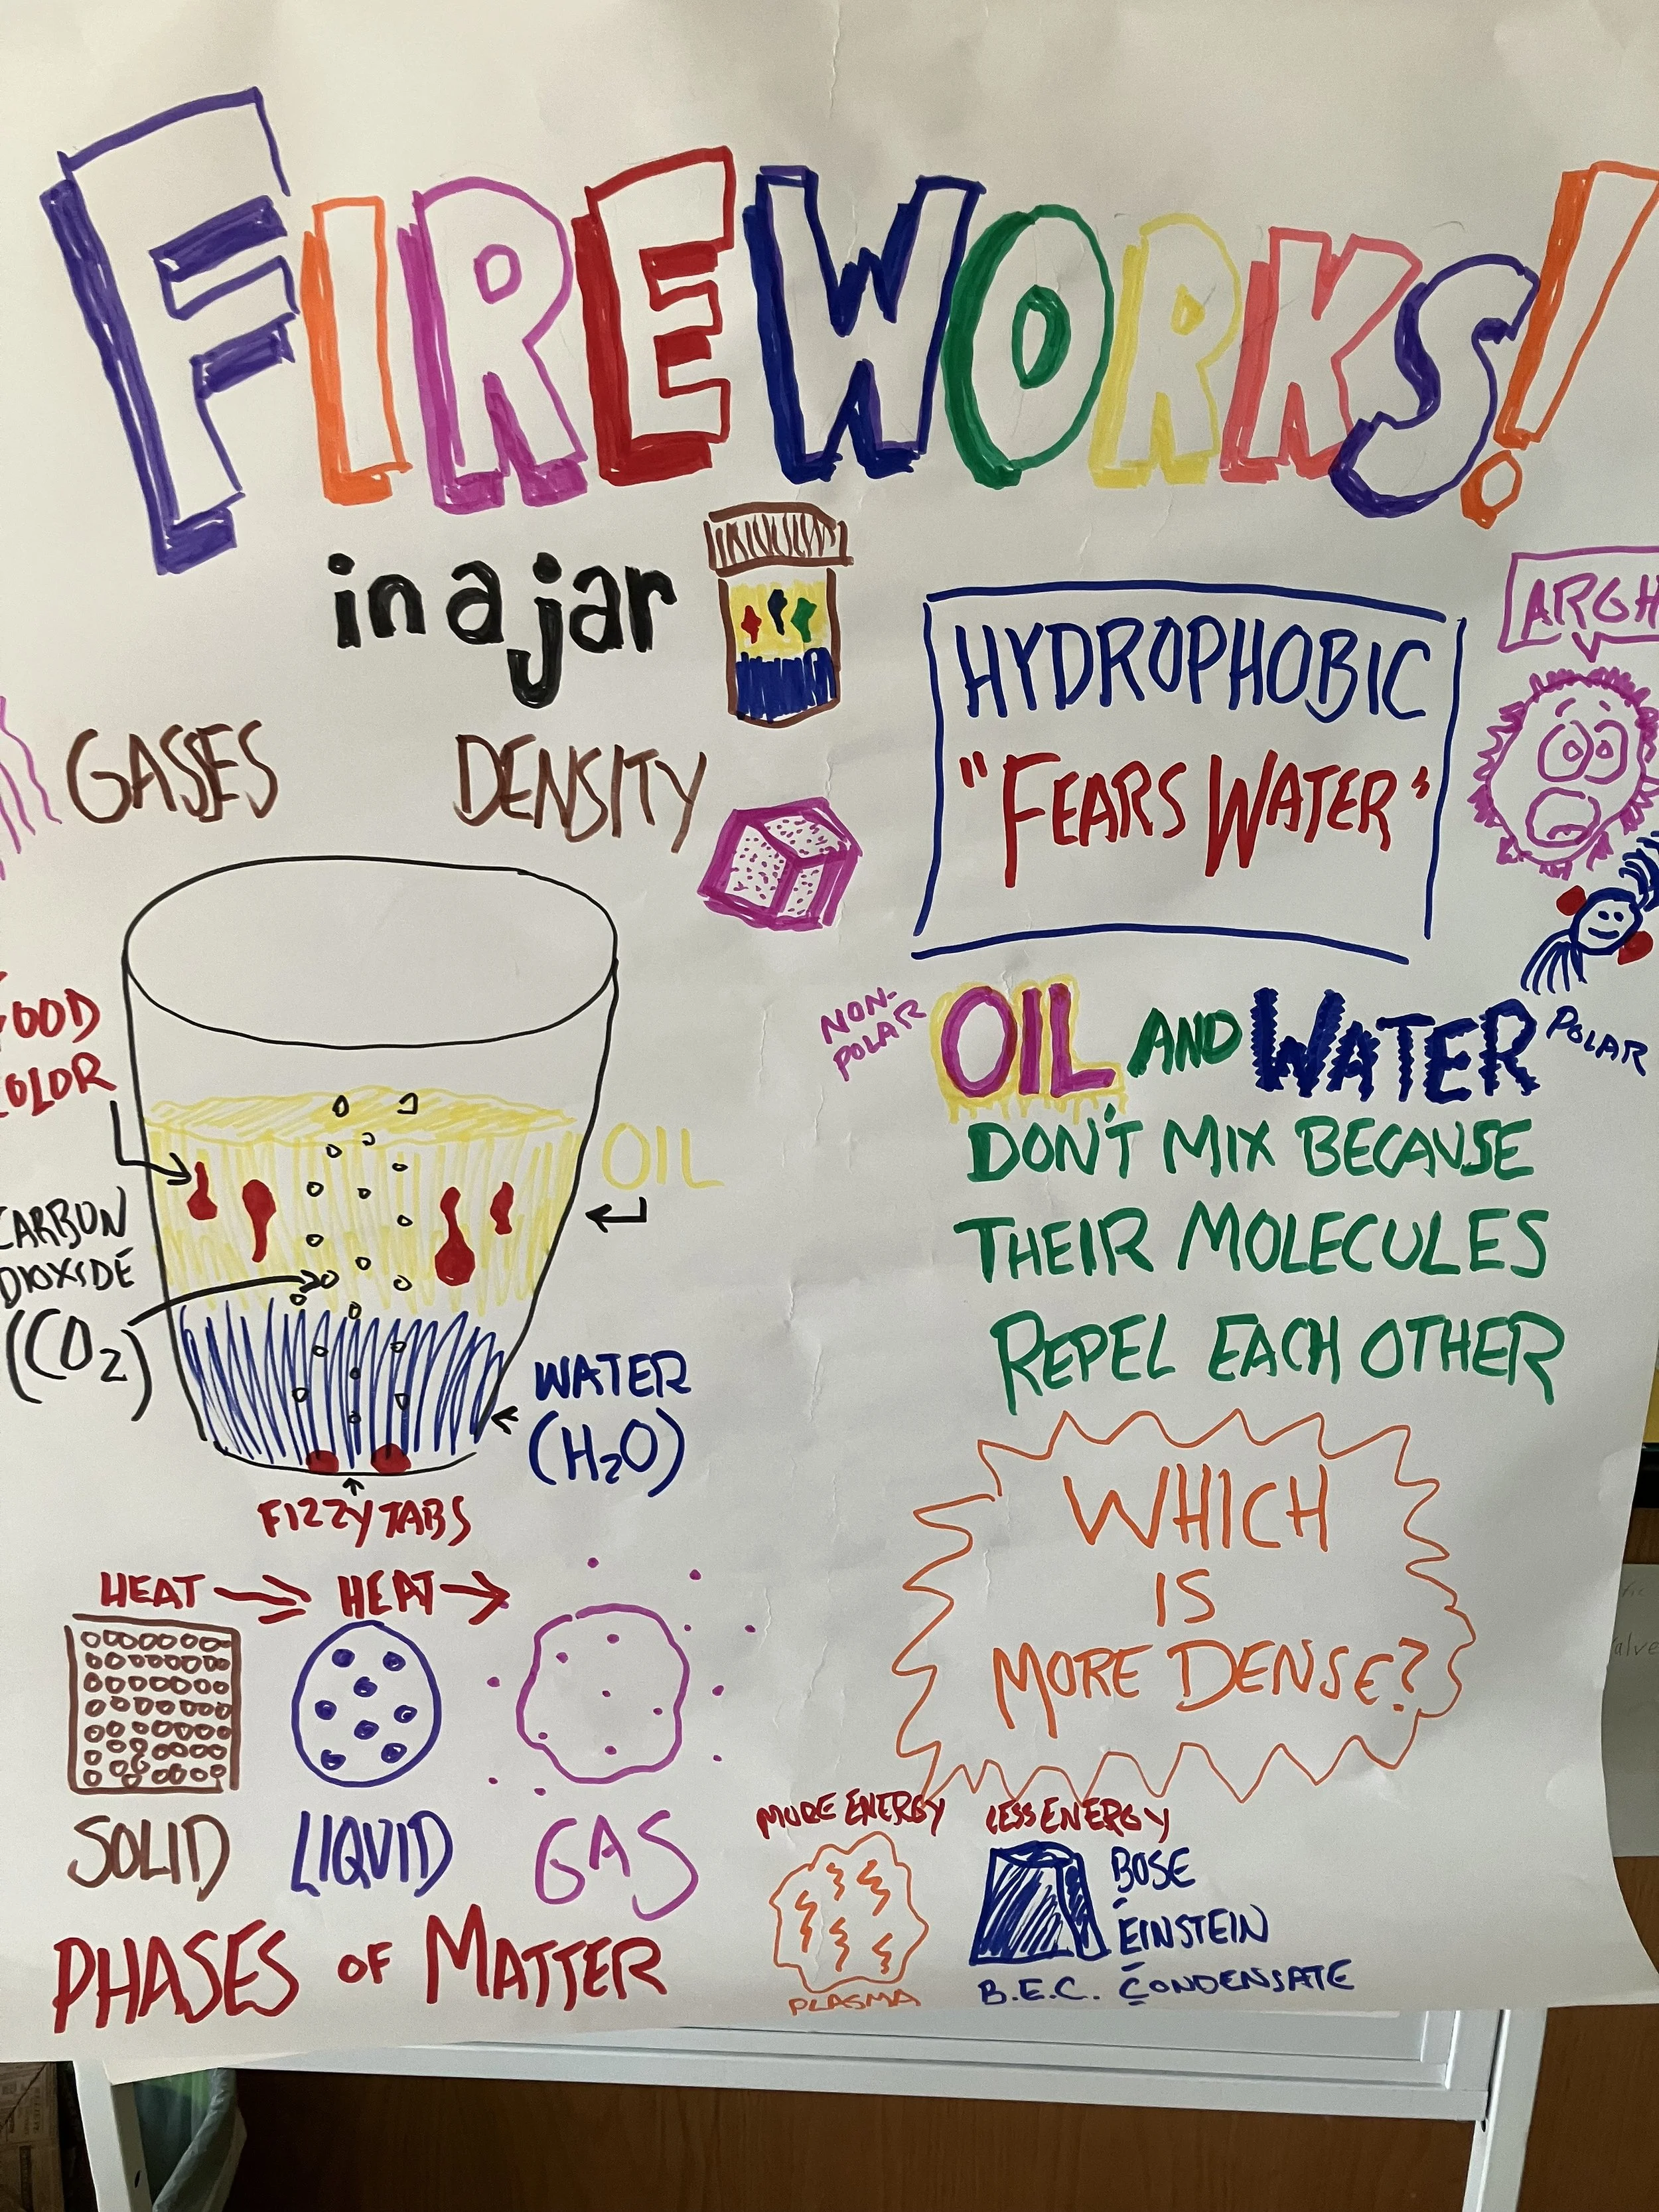 FIREWORKS!
in a jar
HYDROPHOBIC
"FEARS WATER"
ARGH
GASSES
DENSITY
FOOD
COLOR
OIL
CARBON
DIOXIDE
(CO2)
WATER
(H2O)
FIZZY TABS
NON-
POLAR
OIL AND WATER
POLAR
DON'T MIX BECAUSE
THEIR MOLECULES
REPEL EACH OTHER
WHICH
IS
MORE DENSE?
HEAT → HEAT →
SOLID LIQUID GAS
PHASES OF MATTER
MORE ENERGY
PLASMA
LESS ENERGY
BOSE
EINSTEIN
CONDENSATE
B.E.C.